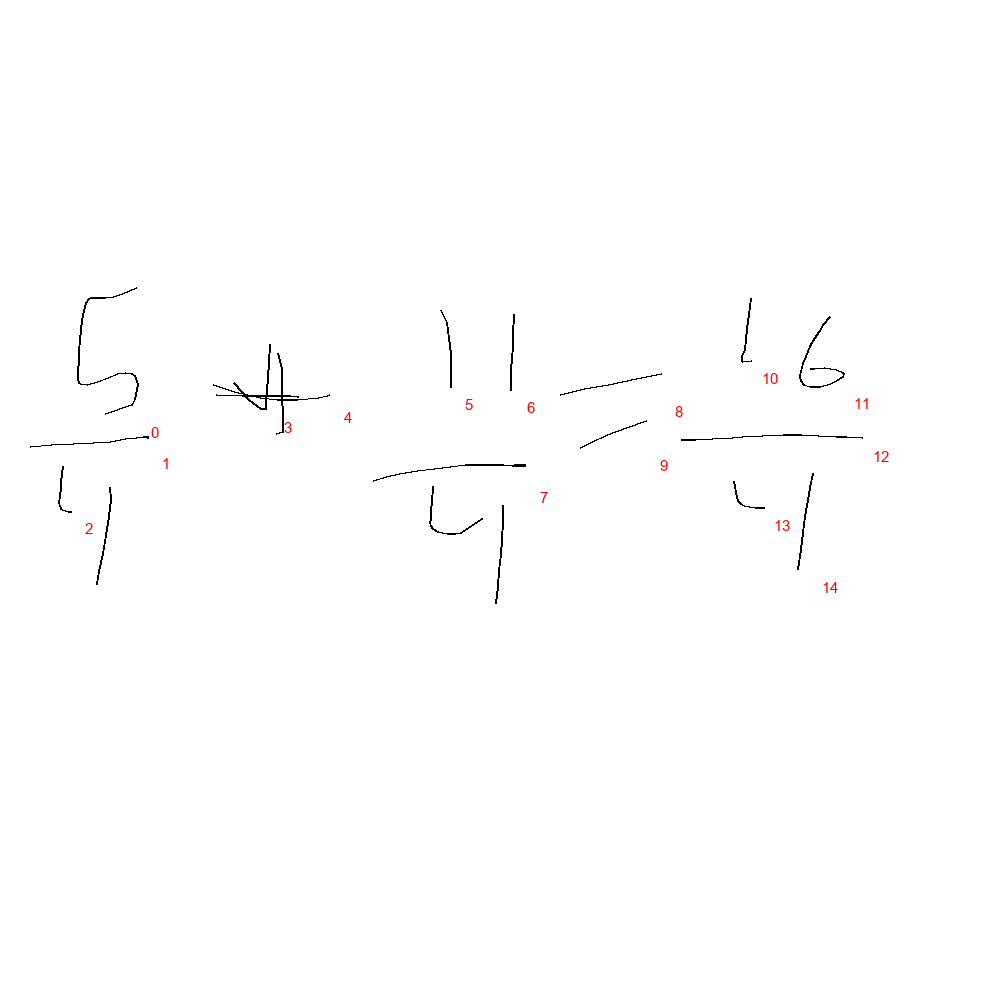 5/4 + 11/4 = 16/4
0 1 2 3 4 5 6 7 8 9 10 11 12 13 14